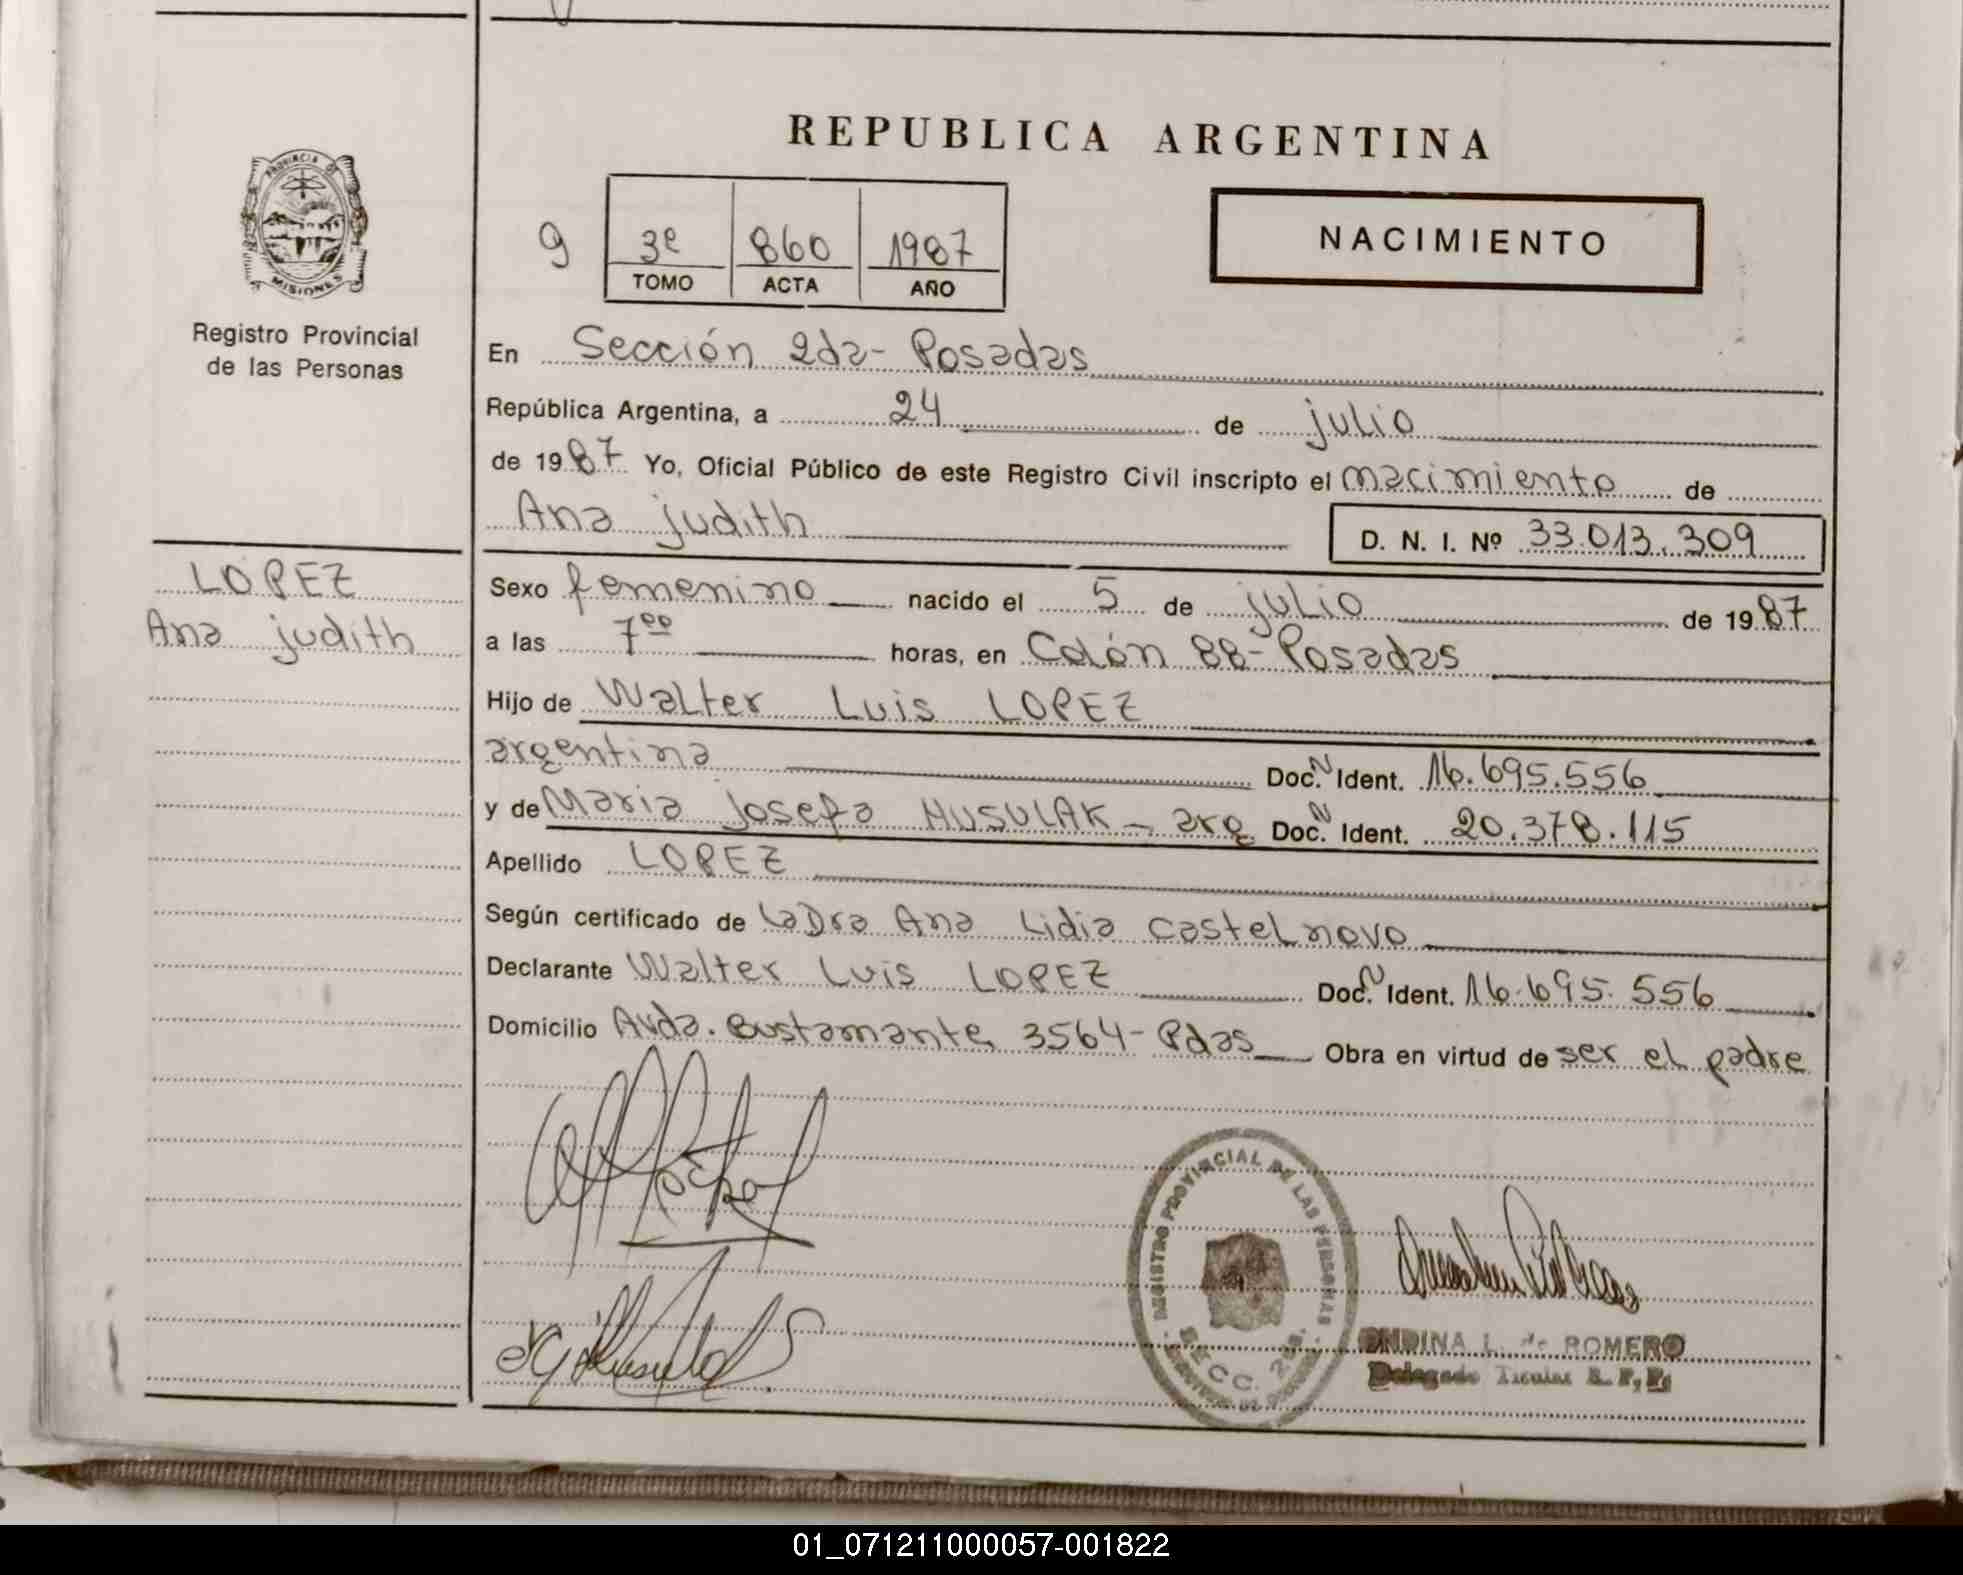 REPUBLICA ARGENTINA
PROVINCIA DE
MISIONES
Registro Provincial
de las Personas
9 3º 860 1987
TOMO ACTA AÑO
NACIMIENTO
En Sección 2da- Posadas
República Argentina, a 24 de julio
de 1987 Yo, Oficial Público de este Registro Civil inscripto el nacimiento de
Ana judith D. N. I. Nº 33.013.309
LOPEZ
Ana judith
Sexo femenino nacido el 5 de julio de 1987
a las 7⁰⁰ horas, en Colón 88- Posadas
Hijo de Walter Luis LOPEZ
argentina Doc. N Ident. 16.695.556
y de Maria Josefa MUSULAK - arg Doc. N Ident. 20.378.115
Apellido LOPEZ
Según certificado de La Dra Ana Lidia Castelnovo
Declarante Walter Luis LOPEZ Doc. N Ident. 16.695.556
Domicilio Avda. Bustamante 3564- Pdas Obra en virtud de ser el padre
REGISTRO PROVINCIAL DE LAS PERSONAS
SECC. 2da.
ONDINA L. de ROMERO
Delegado Titular R. P. Ps
01_071211000057-001822